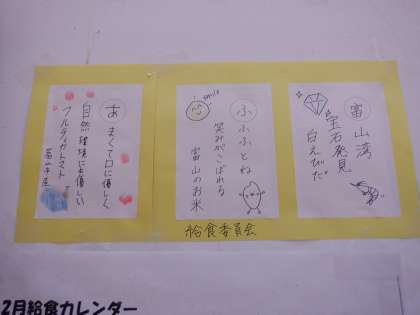 富山湾
宝石発見
白えびだ
smile
ふふふとね
笑みがこぼれる
富山のお米
あまくて口に優しく
自然環境にも優しい
フルティカトマト
給食委員会
2月給食カレンダー